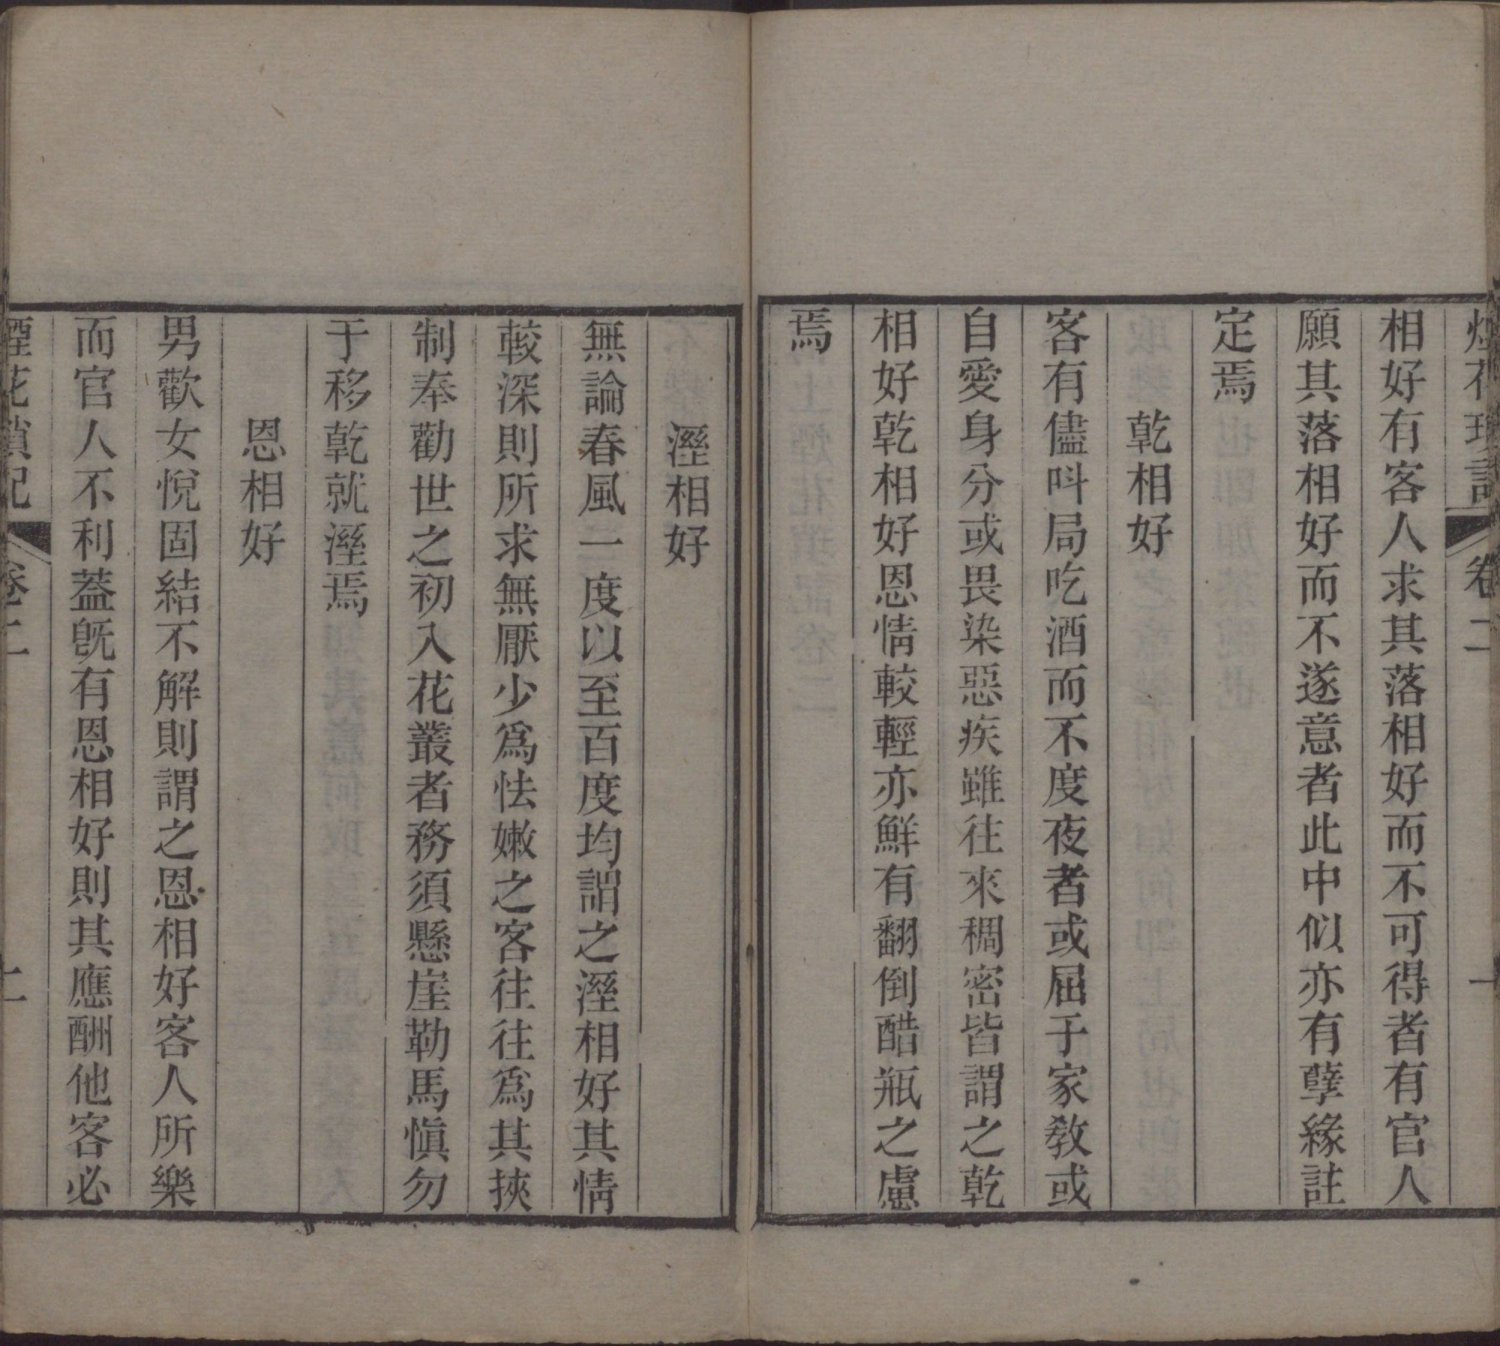 相好有客人求其落相好而不可得者有官人
願其落相好而不遂意者此中似亦有孽緣註
定焉
乾相好
客有儘呌局吃酒而不度夜者或屈于家敎或
自愛身分或畏染惡疾雖往來稠密皆謂之乾
相好乾相好恩情較輕亦鮮有翻倒醋瓶之慮
焉
溼相好
無論春風一度以至百度均謂之溼相好其情
較深則所求無厭少爲怯嫩之客往往爲其挾
制奉勸世之初入花叢者務須懸崖勒馬愼勿
于移乾就溼焉
恩相好
男歡女悅固結不解則謂之恩相好客人所樂
而官人不利蓋旣有恩相好則其應酬他客必
煙花瑣記 卷二